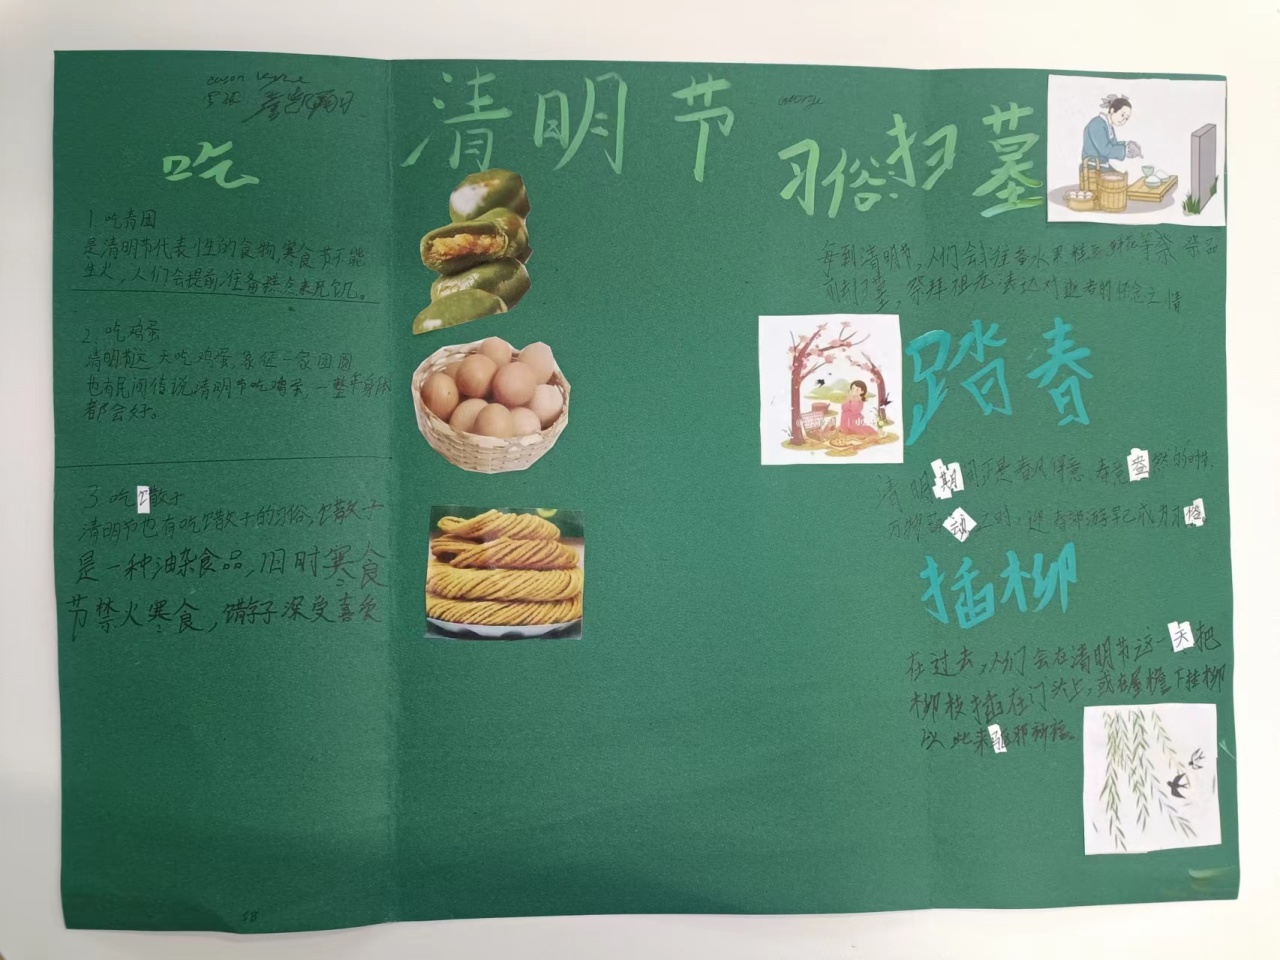 清明节
吃
1. 吃青团
是清明节代表性的食物,寒食节不能
生火,人们会提前准备糕点来充饥。
2. 吃鸡蛋
清明节这一天吃鸡蛋,象征一家团圆
也有民间传说,清明节吃鸡蛋,一整年身体
都会好。
3. 吃馓子
清明节也有吃馓子的习俗,馓子
是一种油杂食品,旧时寒食
节禁火寒食,馓子深受喜爱
George
习俗扫墓
每到清明节,人们会
前去扫墓,祭拜祖先表达对逝者的怀念之情
踏春
清明期间正是春风得意,春意盎然的时
插柳
在过去,人们会在清明节这一天把
柳枝插在门头上,或在屋檐下挂柳
以此来驱邪祈福。